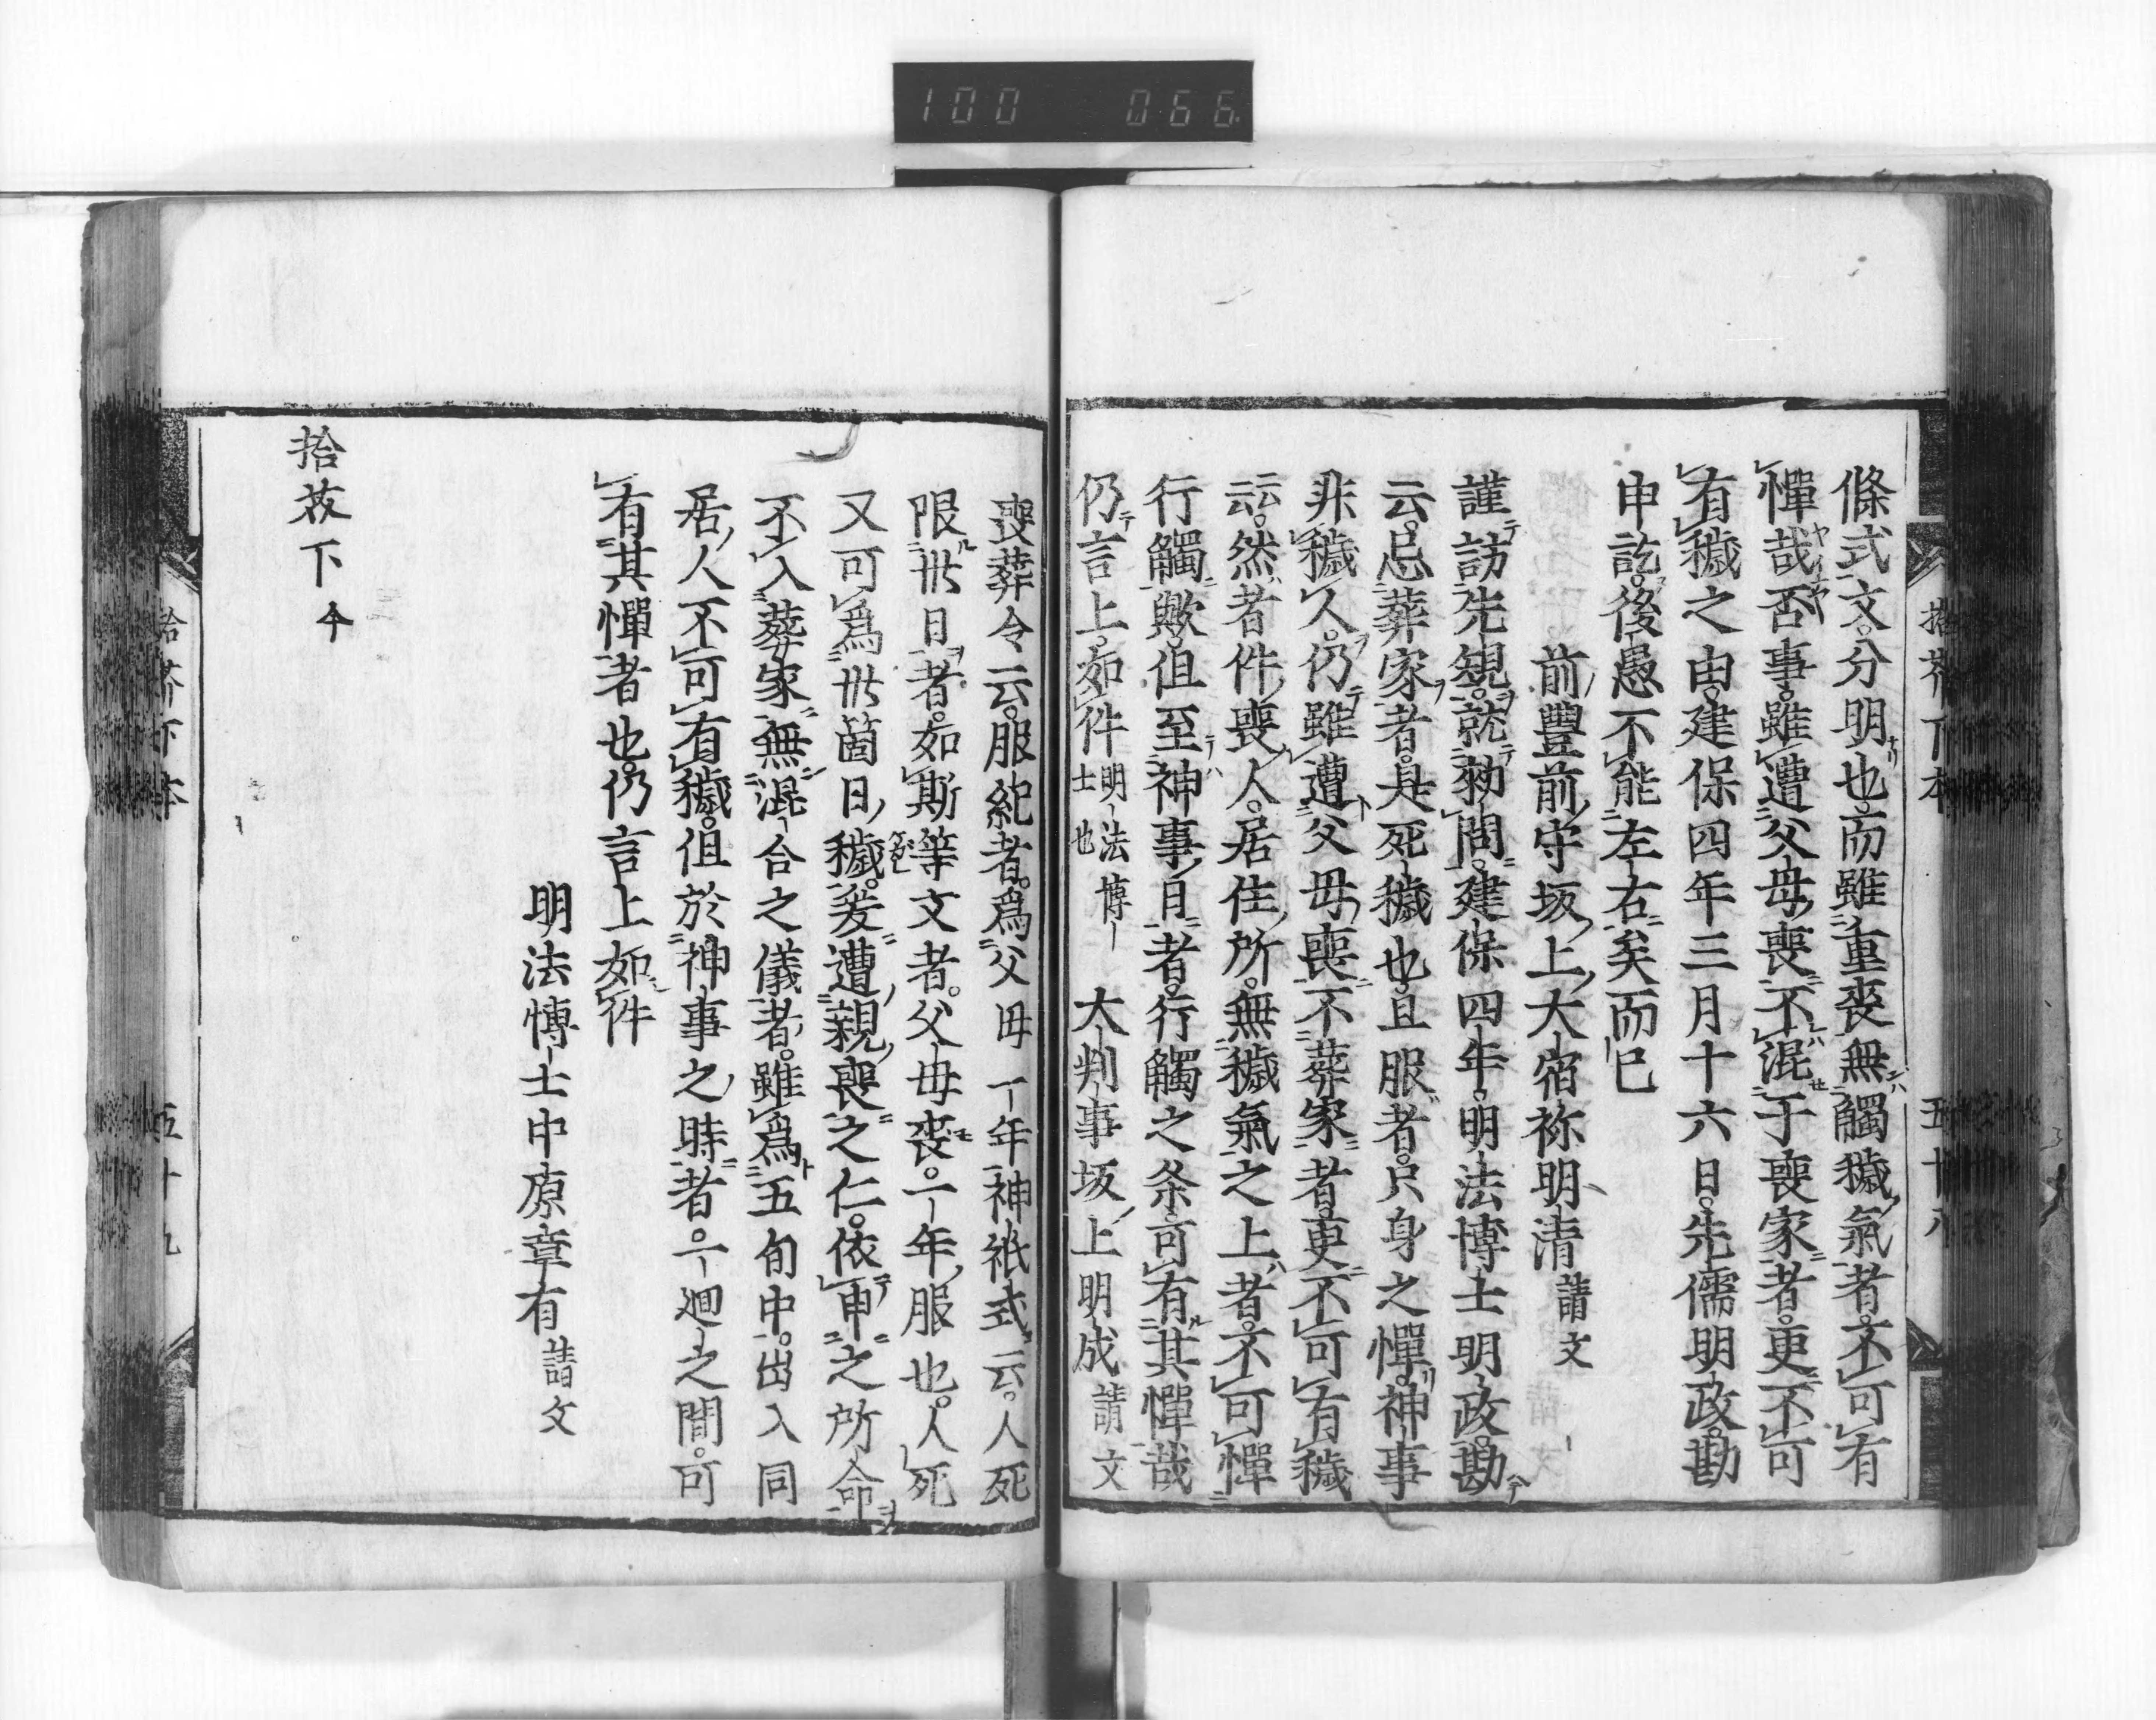 100 066
條式文分明也而雖重喪無觸穢氣者不可有
憚哉否事雖遭父母喪不混于喪家者更不可
有穢之由建保四年三月十六日先儒明政勘
申訖後愚不能左右矣而已
前豐前守坂上大宿祢明清請文
謹訪先規就勅問建保四年明法博士明政勘
云忌葬家者是死穢也且服者只身之憚神事
非穢人仍雖遭父母喪不葬家者更不可有穢
云云然者件喪人居住所無穢氣之上者不可憚
行觸歟但至神事日者行觸之条可有其憚哉
仍言上如件明法博士也 大判事坂上明成請文
拾芥下本 五十八
喪葬令云服紀者爲父母一年神祇式云人死
限卅日者如斯等文者父母喪一年服也人死
又可爲卅箇日穢爰遭親喪之仁依申之所命
不入葬家無混合之儀者雖爲五旬中出入同
居人不可有穢但於神事之時者一廻之間可
有其憚者也仍言上如件
明法博士中原章有請文
拾芥下本 五十九